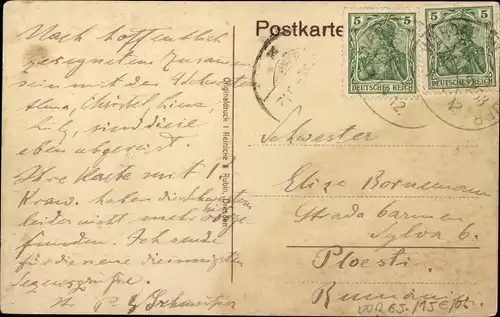 Postkarte
5 5
DEUTSCHES REICH
5 5
DEUTSCHES REICH
12.
12
Originaldruck i Reinicke & Rubin, Dresden
Nach hoffentlich
gesegnetem Zusammen
sein mit den Schwestern
Alma, Christel, Lina,
Lily, sind die
eben abgereist.
Ihre Karte mit
haben die
leider nicht mehr
funden. Ich sende
für deine die innigsten
Segensgrüße
Schwester
Elize Bornemann
Strada Carmen
Sylva 6.
Ploesti.
Rumänien